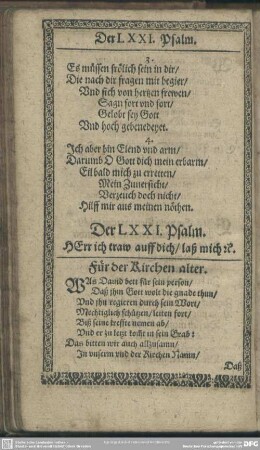 Der LXXI. Psalm.
3.
Es müssen frölich sein in dir/
Die nach dir fragen mit begier/
Vnd sich von hertzen frewen/
Sagn fort vnd fort/
Gelobt sey Gott
Vnd hoch gebenedeyet.
4.
Ich aber bin Elend vnd arm/
Darumb O Gott dich mein erbarm/
Eil bald mich zu erretten/
Mein Zuuersicht/
Verzeuch doch nicht/
Hilff mir aus meinen nöthen.
Der LXXI. Psalm.
HErr ich traw auff dich/ laß mich ꝛc.
Für der Kirchen alter.
WAs Dauid bett für sein person/
Daß jhm Gott wolt die gnade thun/
Vnd jhn regieren durch sein Wort/
Mechtiglich schützen/ leiten fort/
Biß seine kreffte nemen ab/
Vnd er zu letzt kömt in sein Grab:
Das bitten wir auch allzusamn/
In vnserm vnd der Kirchen Namn/
Daß